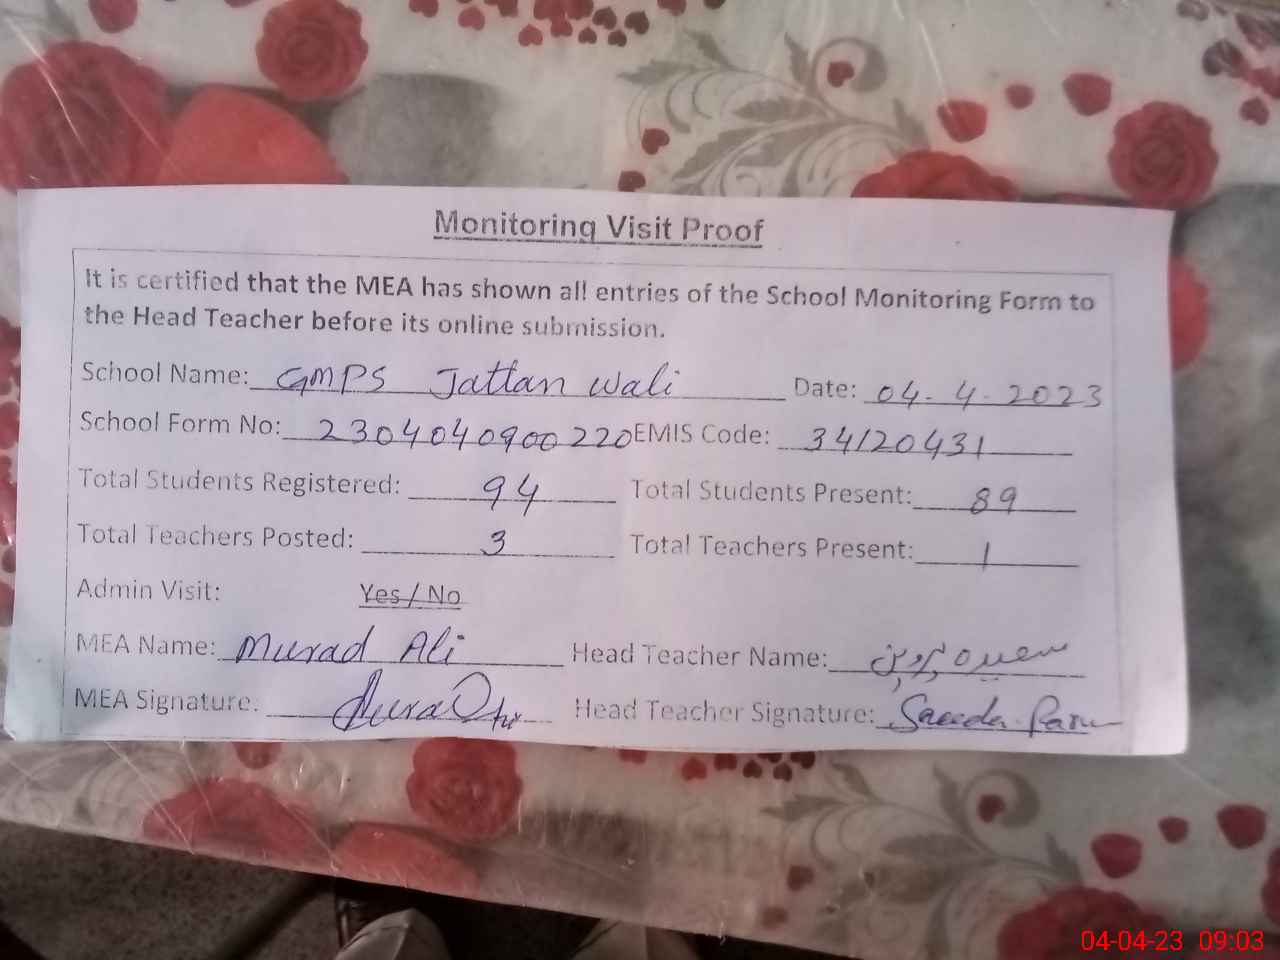 Monitoring Visit Proof
It is certified that the MEA has shown all entries of the School Monitoring Form to
the Head Teacher before its online submission.
School Name: GMPS Jattan Wali Date: 04-4-2023
School Form No: 2304040900220 EMIS Code: 34120431
Total Students Registered: 94 Total Students Present: 89
Total Teachers Posted: 3 Total Teachers Present: 1
Admin Visit: Yes / No
MEA Name: Murad Ali Head Teacher Name: سعیدہ پروین
MEA Signature: Head Teacher Signature: Saeeda
04-04-23 09:03